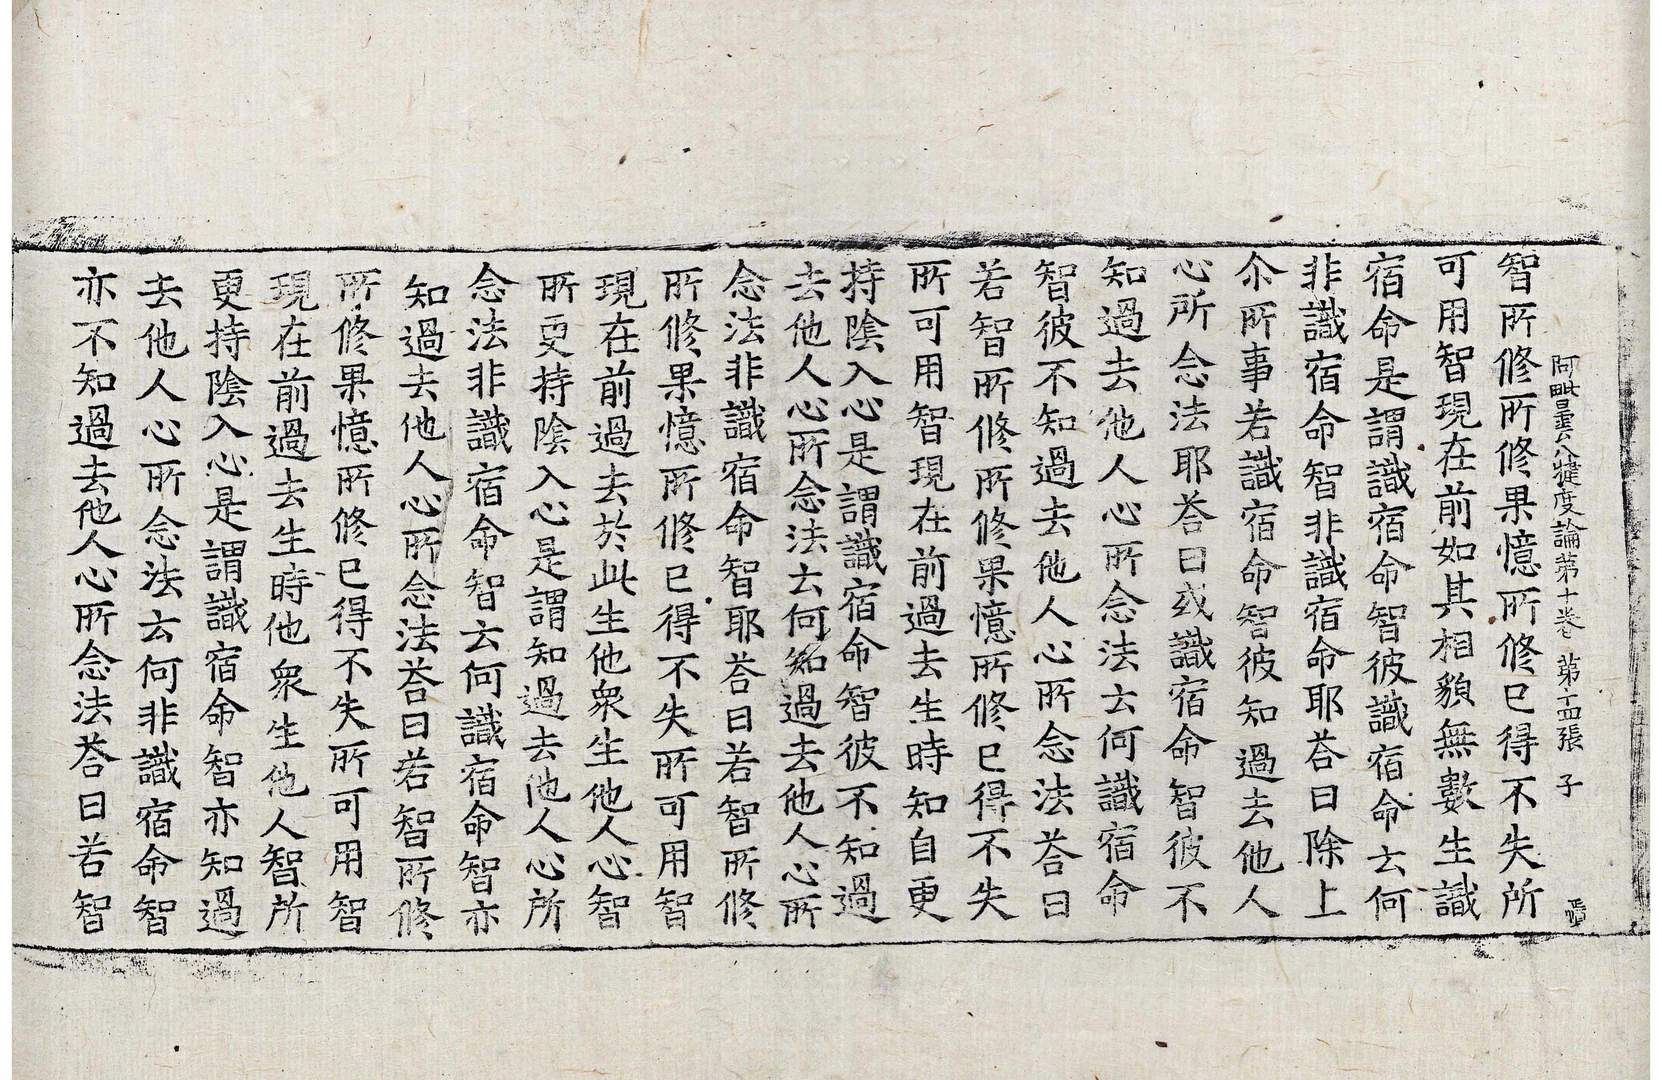 阿毗曇八犍度論第十卷 第十四張 子
智所修所修果憶所修已得不失所
可用智現在前如其相貌無數生識
宿命是謂識宿命智彼識宿命云何
非識宿命智非識宿命耶荅曰除上
尒所事若識宿命智彼知過去他人
心所念法耶荅曰或識宿命智彼不
知過去他人心所念法云何識宿命
智彼不知過去他人心所念法荅曰
若智所修所修果憶所修已得不失
所可用智現在前過去生時知自更
持陰入心是謂識宿命智彼不知過
去他人心所念法云何知過去他人心所
念法非識宿命智耶荅曰若智所修
所修果憶所修已得不失所可用智
現在前過去於此生他衆生他人心智
所更持陰入心是謂知過去他人心所
念法非識宿命智云何識宿命智亦
知過去他人心所念法荅曰若智所修
所修果憶所修已得不失所可用智
現在前過去生時他衆生他人智所
更持陰入心是謂識宿命智亦知過
去他人心所念法云何非識宿命智
亦不知過去他人心所念法荅曰若智